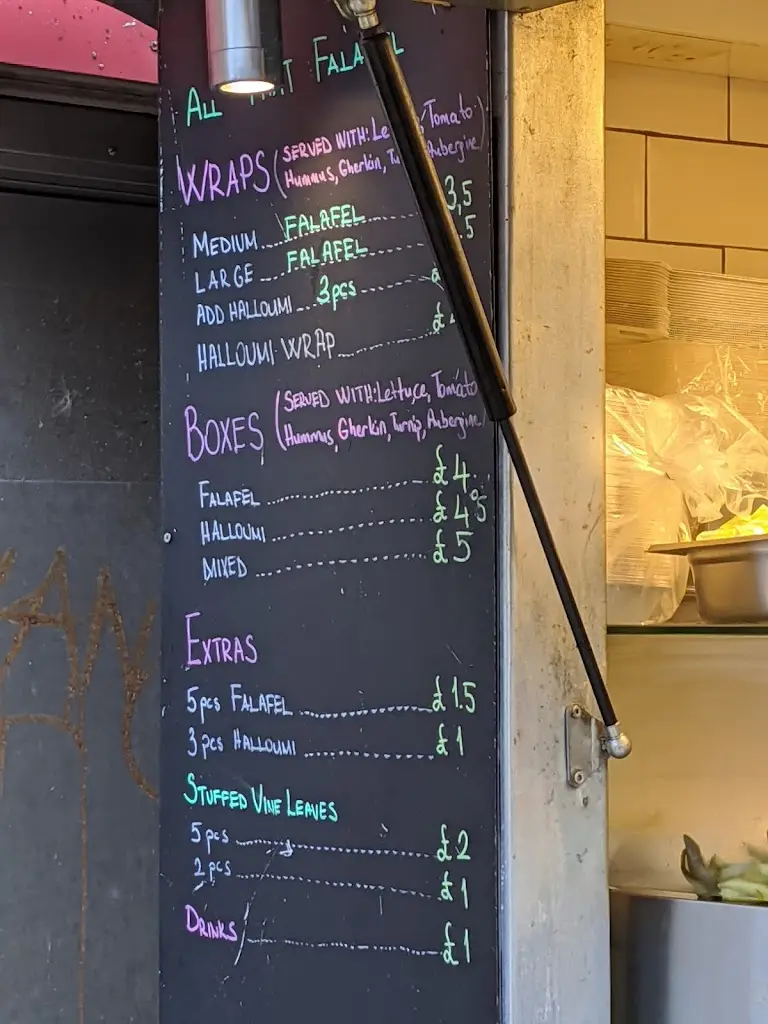 ALL FALAFEL
WRAPS (SERVED WITH: Lettuce, Tomato
Hummus, Gherkin, Turnip, Aubergine)
MEDIUM FALAFEL 3,5
LARGE FALAFEL .5
ADD HALLOUMI 3pcs
HALLOUMI WRAP £
BOXES (SERVED WITH: Lettuce, Tomato
Hummus, Gherkin, Turnip, Aubergine)
FALAFEL £4
HALLOUMI £4.5
MIXED £5
EXTRAS
5pcs FALAFEL £1.5
3pcs HALLOUMI £1
STUFFED VINE LEAVES
5pcs £2
2pcs £1
DRINKS £1